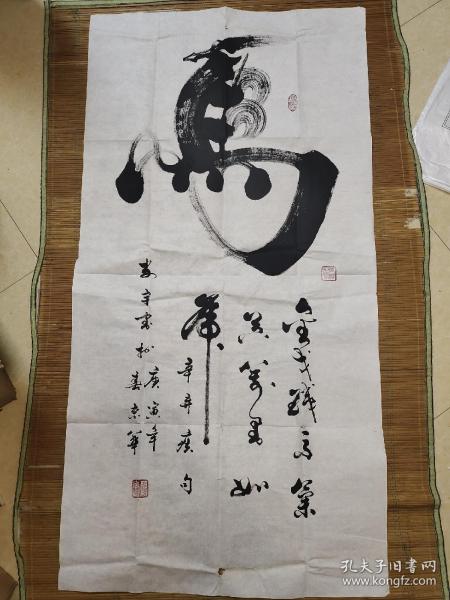 馬
金戈鐵马氣
吞萬里如
虎
辛弃疾句
庚寅年
春京華
孔夫子旧书网
www.kongfz.com